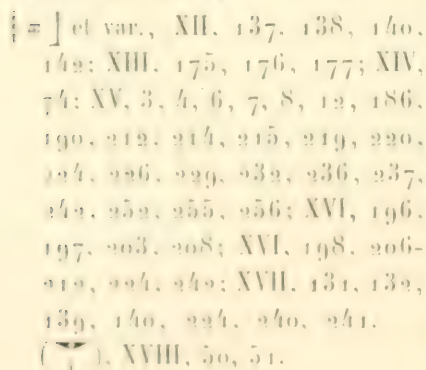 et var., XII, 137, 138, 140,
142; XIII, 175, 176, 177; XIV,
74; XV, 3, 4, 6, 7, 8, 12, 186,
190, 212, 214, 215, 219, 220,
224, 226, 229, 232, 236, 237,
242, 252, 255, 256; XVI, 196,
197, 203, 208; XVI, 198, 206-
212, 224, 242; XVII, 131, 132,
139, 140, 224, 240, 241.
( ), XVIII, 50, 51.